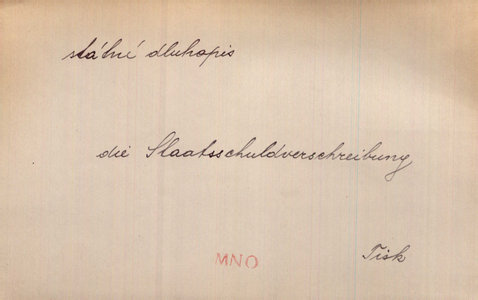 státní dluhopis
die Staatsschuldverschreibung
MNO
Tisk